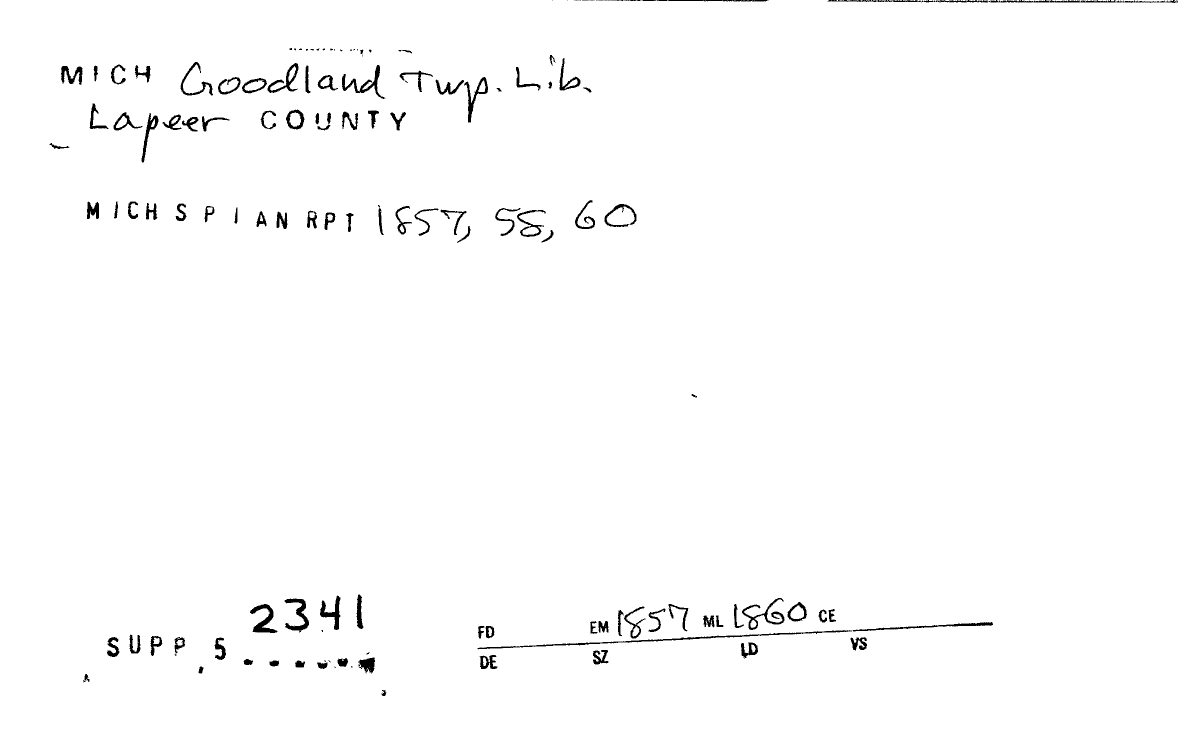 MICH Goodland Twp. Lib.
Lapeer COUNTY
MICH S P I AN RPT 1857, 58, 60
2341
SUPP. 5
FD EM 1857 ML 1860 CE
DE SZ LD VS